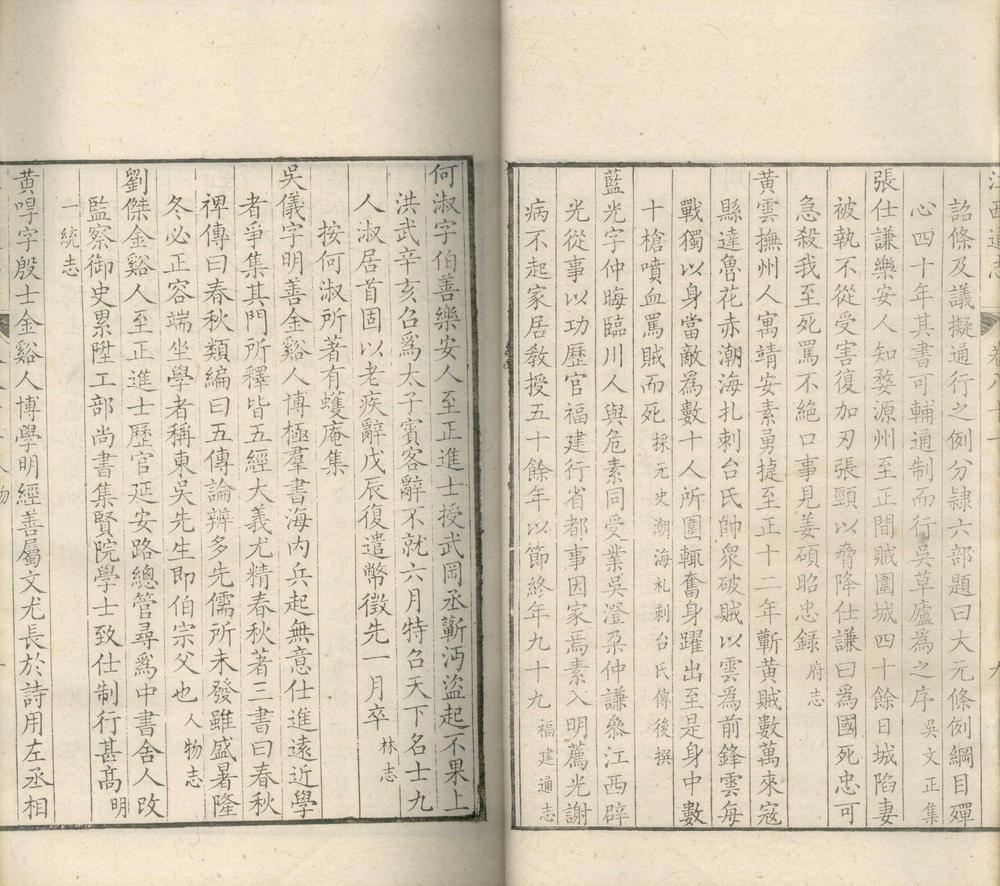 詔條及議擬通行之例分隷六部題曰大元條例綱目殫
心四十年其書可輔通制而行吳草廬為之序吳文正集
張仕謙樂安人知婺源州至正間賊圍城四十餘日城陷妻
被執不從受害復加刃張頸以脅降仕謙曰為國死忠可
急殺我至死罵不絕口事見姜碩昭忠録府志
黃雲撫州人寓靖安素勇㨗至正十二年蘄黃賊數萬來寇
縣達魯花赤潮海扎刺台氏帥衆破賊以雲爲前鋒雲每
戰獨以身當敵爲數十人所圍輒奮身躍出至是身中數
十槍噴血罵賊而死採元史潮海札刺台氏傳後撰
藍光字仲晦臨川人與危素同受業吳澄朶仲謙叅江西辟
光從事以功歷官福建行省都事因家焉素入明薦光謝
病不起家居教授五十餘年以節終年九十九福建通志
何淑字伯善樂安人至正進士授武岡丞蘄沔盜起不果上
洪武辛亥召爲太子賓客辭不就六月特召天下名士九
人淑居首固以老疾辭戊辰復遣幣徵先一月卒林志
按何淑所著有蠖庵集
吳儀字明善金谿人博極羣書海内兵起無意仕進遠近學
者爭集其門所釋皆五經大義尤精春秋著三書曰春秋
裨傳曰春秋類編曰五傳論辨多先儒所未發雖盛暑隆
冬必正容端坐學者稱東吳先生即伯宗父也人物志
劉傑金谿人至正進士歷官延安路總管尋爲中書舍人改
監察御史累陞工部尚書集賢院學士致仕制行甚高明
一統志
黃嘑字殷士金谿人博學明經善屬文尤長於詩用左丞相